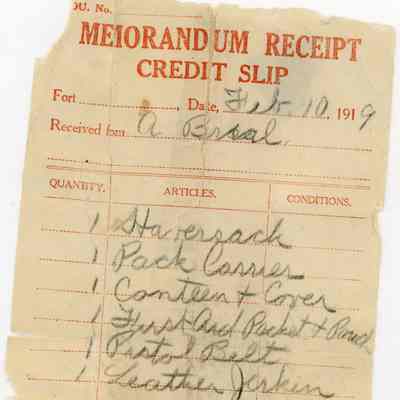 OU. No.
MEMORANDUM RECEIPT
CREDIT SLIP
Fort , Date, Feb. 10, 1919
Received from A
QUANTITY. ARTICLES. CONDITIONS.
1 Haversack
1 Pack Carrier
1 Canteen + Cover
1 First Aid Packet + Pouch
1 Pistol Belt
1 Leather Jerkin